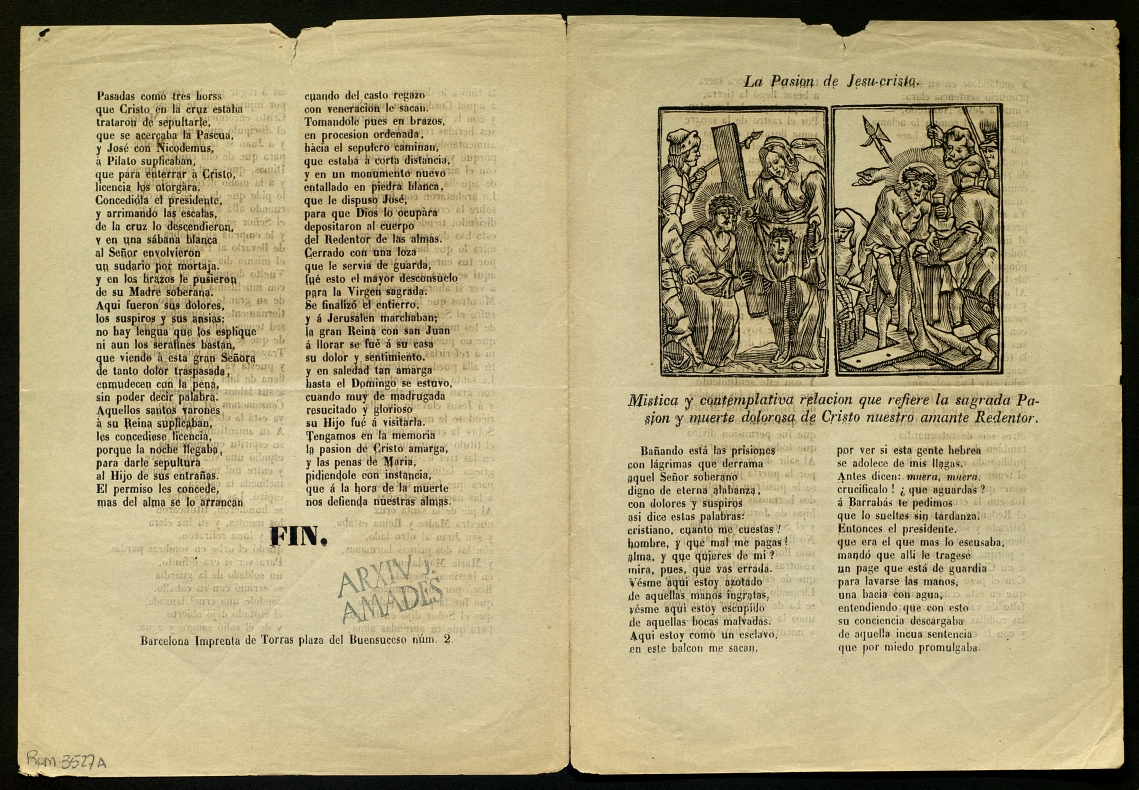 Pasadas como tres horss
que Cristo en la cruz estaba
trataron de sepultarle,
que se acercaba la Pascua,
y José con Nicodemus,
à Pilato suplicaban,
que para enterrar à Cristo,
licencia los otorgàra.
Concedióla el presidente,
y arrimando las escalas,
de la cruz lo descendieron,
y en una sábana blanca
al Señor envolvieron
un sudario por mortaja.
y en los brazos le pusieron
de su Madre soberana.
Aqui fueron sus dolores,
los suspiros y sus ansias;
no hay lengua que los esplique
ni aun los serafines bastan,
que viendo à esta gran Señora
de tanto dolor traspasada,
enmudecen con la pena,
sin poder decir palabra.
Aquellos santos varones
à su Reina suplicaban,
les concediese licencia,
porque la noche llegaba,
para darle sepultura
al Hijo de sus entrañas.
El permiso les concede,
mas del alma se lo arrancan
cuando del casto regazo
con veneracion le sacan.
Tomandole pues en brazos,
en procesion ordenada,
hàcia el sepulcro caminan,
que estaba à corta distancia,
y en un monumento nuevo
entallado en piedra blanca,
que le dispuso José,
para que Dios lo ocupàra
depositaron al cuerpo
del Redentor de las almas.
Cerrado con una loza
que le servia de guarda,
fué esto el mayor desconsuelo
para la Virgen sagrada.
Se finalizó el entierro,
y á Jerusalen marchaban;
la gran Reina con san Juan
á llorar se fué á su casa
su dolor y sentimiento.
y en saledad tan amarga
hasta el Domingo se estuvo,
cuando muy de madrugada
resucitado y glorioso
su Hijo fué á visitarla.
Tengamos en la memoria
la pasion de Cristo amarga,
y las penas de Maria,
pidiendole con instancia,
que á la hora de la muerte
nos defienda nuestras almas.
FIN.
ARXIV J.
AMADES
Barcelona Imprenta de Torras plaza del Buensuceso núm. 2.
Rom-3527A
La Pasion de Jesu-cristo.
Mistica y contemplativa relacion que refiere la sagrada Pa-
sion y muerte dolorosa de Cristo nuestro amante Redentor.
Bañando está las prisiones
con lágrimas que derrama
aquel Señor soberano
digno de eterna alabanza,
con dolores y suspiros
asi dice estas palabras:
cristiano, cuanto me cuestas!
hombre, y que mal me pagas!
alma, y que quieres de mi?
mira, pues, que vas errada.
Vésme aqui estoy azotado
de aquellas manos ingratas,
vésme aqui estoy escupido
de aquellas bocas malvadas.
Aqui estoy como un esclavo,
en este balcon me sacan,
por ver si esta gente hebrea
se adolece de mis llagas.
Antes dicen: muera, muera,
crucificalo! ¿que aguardas?
á Barrabás te pedimos
que lo sueltes sin tardanza.
Entonces el presidente.
que era el que mas lo escusaba,
mandó que alli le tragese
un page que está de guardia
para lavarse las manos,
una bacia con agua,
entendiendo que con esto
su conciencia descargaba
de aquella incua sentencia
que por miedo promulgaba.